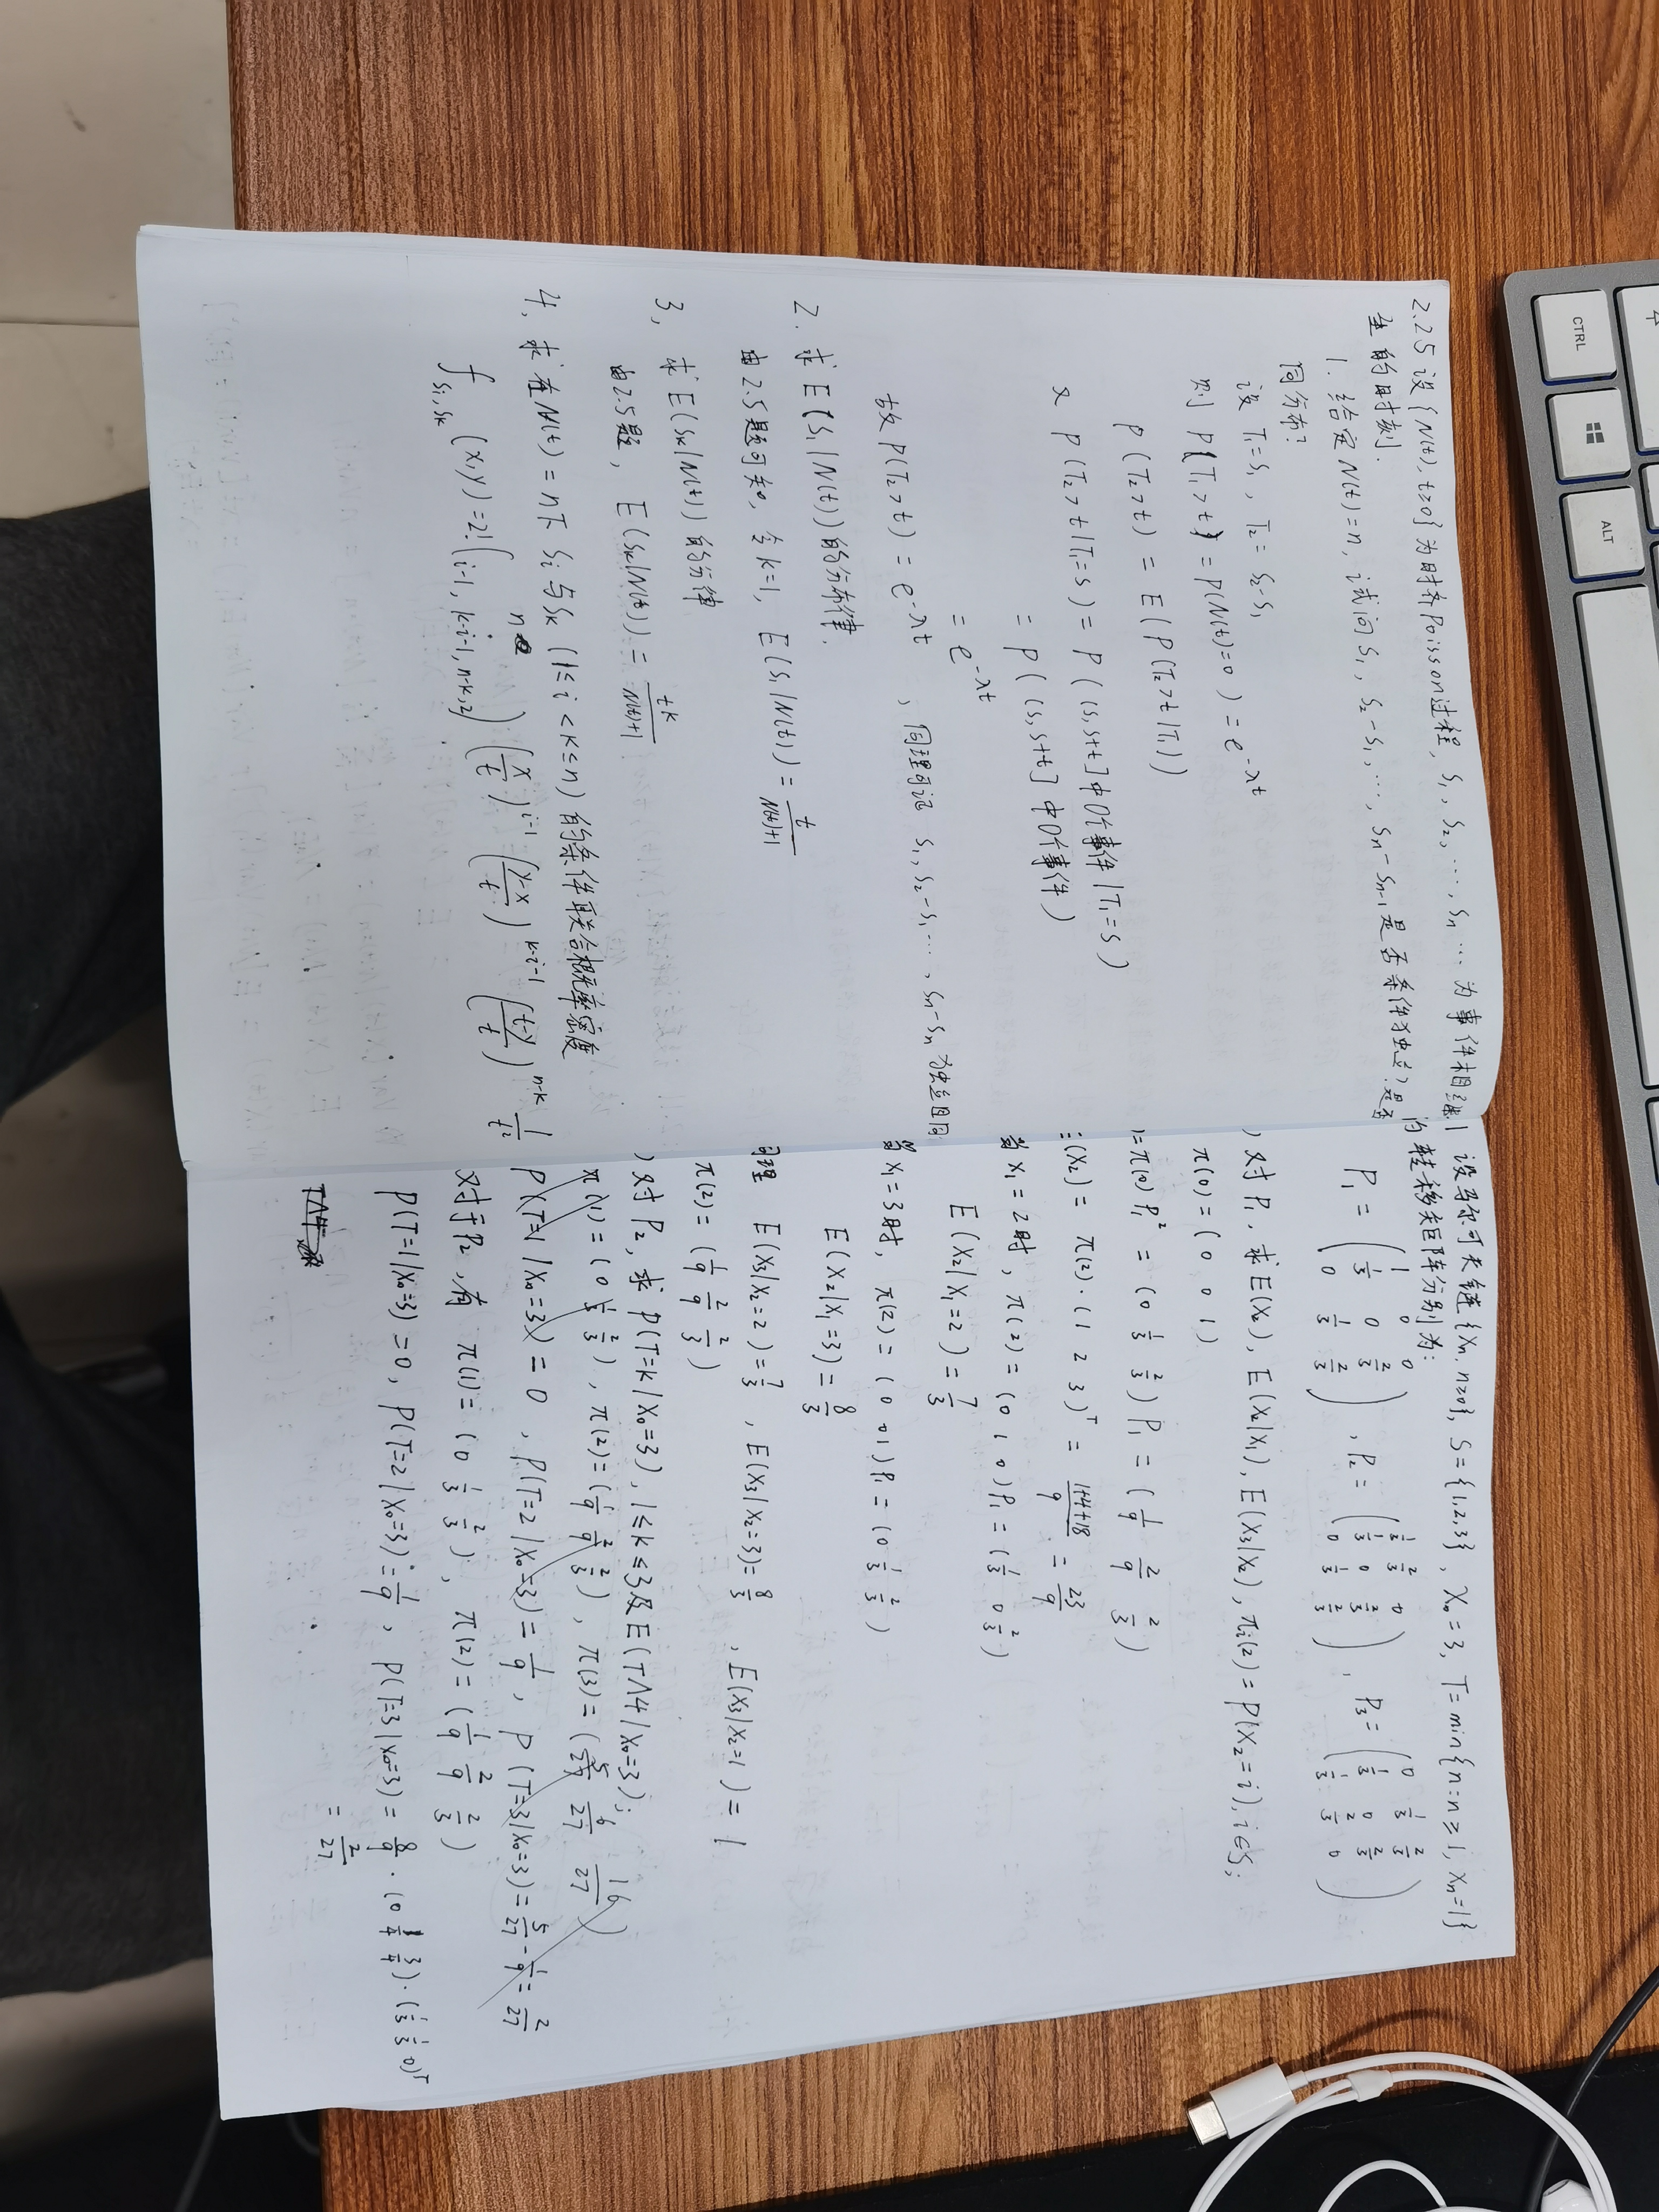 2.25 设{N(t), t≥0}为时齐Poisson过程, S₁, S₂, …, Sₙ … 为事件相继
生的时刻.
1. 给定N(t)=n, 试问 S₁, S₂-S₁, …, Sₙ-Sₙ₋₁是否条件独立? 是否
同分布?
设 T₁=S₁, T₂=S₂-S₁
则 P(T₁>t)=P(N(t)=0)=e^{-λt}
P(T₂>t) = E(P(T₂>t|T₁))
又 P(T₂>t|T₁=s) = P((s,s+t]中0个事件|T₁=s)
= P((s,s+t]中0个事件)
= e^{-λt}
故 P(T₂>t) = e^{-λt}, 同理可证 S₁, S₂-S₁, …, Sₙ-Sₙ 为独立且同
2. 求 E(S₁|N(t))的分布律.
由2.5题可知, 令k=1, E(S₁|N(t)) = t/(N(t)+1)
3, 求 E(Sₖ|N(t)) 的分律
由2.5题, E(Sₖ|N(t)) = tk/(N(t)+1)
4. 求在N(t)=n下 Sᵢ与Sₖ (1≤i<k≤n)的条件联合概率密度
f_{Sᵢ,Sₖ}(x,y) = 2! (n; i-1, k-i-1, n-k, 2) (x/t)^{i-1} ((y-x)/t)^{k-i-1} ((t-y)/t)^{n-k} 1/t²
1 设马尔可夫链{Xₙ, n≥0}, S={1,2,3}, X₀=3, T=min{n:n≥1, Xₙ=1}
的转移矩阵分别为:
P₁ = (1 0 0; 1/3 0 2/3; 0 1/3 2/3), P₂ = (1/2 2/3 0; 1/3 0 2/3; 0 1/3 2/3), P₃ = (0 1/3 2/3; 1/3 0 2/3; 1/3 2/3 0)
) 对 P₁. 求E(X₂), E(X₂|X₁), E(X₃|X₂), πᵢ(2)=P(X₂=i), i∈S;
π(0) = (0 0 1)
)=π(0)P₁² = (0 1/3 2/3)P₁ = (1/9 2/9 2/3)
(X₂) = π(2)·(1 2 3)ᵀ = (1+4+18)/9 = 23/9
当X₁=2时, π(2) = (0 1 0)P₁ = (1/3 0 2/3)
E(X₂|X₁=2) = 7/3
当X₁=3时, π(2) = (0 0 1)P₁ = (0 1/3 2/3)
E(X₂|X₁=3) = 8/3
同理 E(X₃|X₂=2) = 7/3, E(X₃|X₂=3) = 8/3, E(X₃|X₂=1) = 1
π(2) = (1/9 2/9 2/3)
) 对 P₂, 求 P(T=k|X₀=3), 1≤k≤3及E(T∧4|X₀=3);
π(1) = (0 1/3 2/3), π(2) = (1/9 2/9 2/3), π(3) = (5/27 6/27 16/27)
P(T=1|X₀=3) = 0, P(T=2|X₀=3) = 1/9, P(T=3|X₀=3) = 5/27 - 1/9 = 2/27
对于P₂, 有 π(1) = (0 1/3 2/3), π(2) = (1/9 2/9 2/3)
P(T=1|X₀=3) = 0, P(T=2|X₀=3) = 1/9, P(T=3|X₀=3) = 8/9 · (0 1/4 3/4) · (1/3 1/3 0)ᵀ
= 2/27
CTRL
ALT